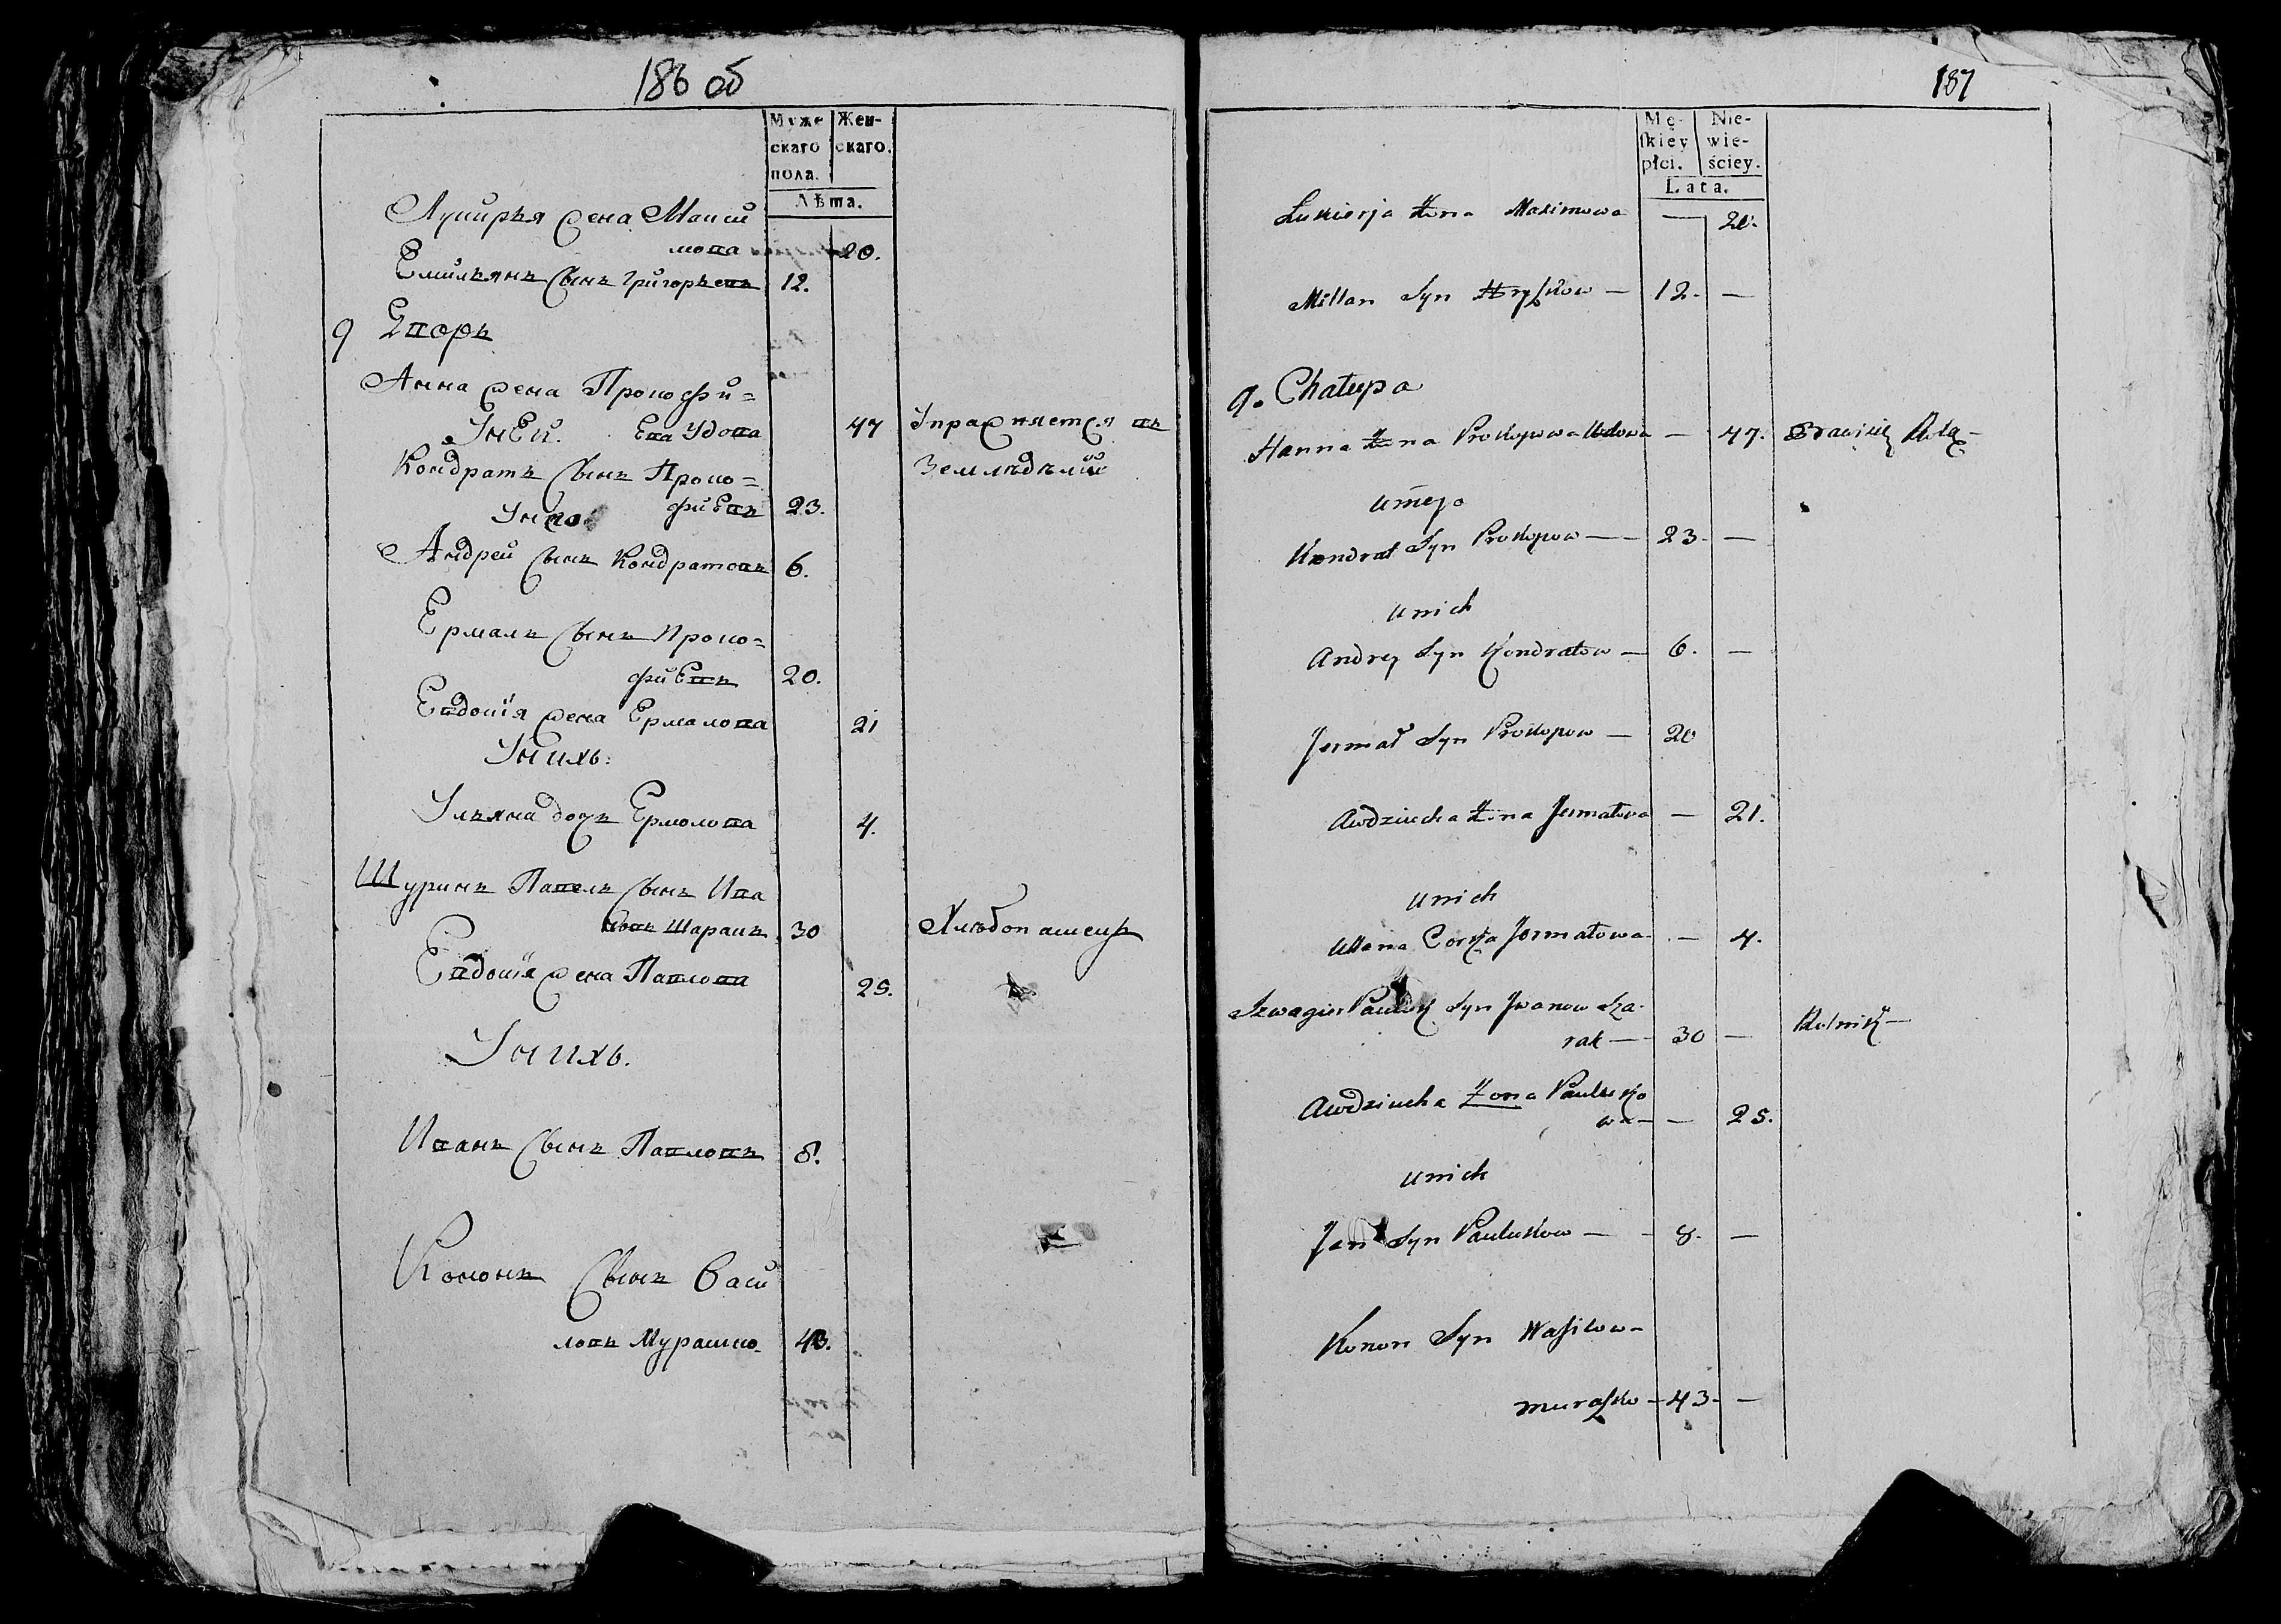 186 об
Муже
скаго
пола.
Жен-
скаго.
Лѣта.
Лукирья жена Макси
мова 20.
Емильянъ сынъ Григорьевъ 12.
9 Дворъ
Анна жена Прокофи=
Ева Удова 47 Упражняется въ
У ней. Земледѣлiи
Кондратъ сынъ Проко=
фиевъ 23.
У него
Андрей сынъ Кондратовъ 6.
Ермалъ сынъ Проко=
фиевъ 20.
Евдокiя жена Ермалова 21
У нихъ:
Ульяна дочь Ермолова 4.
Шуринъ Павелъ сынъ Ива
новъ Шаракъ 30 Хлебопашецъ
Евдокiя жена Павлова 25.
У нихъ.
Иванъ сынъ Павловъ 8.
Кононъ сынъ Васи
ловъ Мурашко 43.
187
Mę-
skiéy
płci.
Nie-
wie-
ściey.
Lata.
Lukierja Żona Maximowa — 20.
Millan Syn Hryszkow — 12. —
9. Chałupa
Hanna Żona Prokopowa Wdowa — 47. Rolą
u niego
Kondrat Syn Prokopow — 23. —
u nich
Andrey Syn Kondratow — 6. —
Jermał Syn Prokopow — 20
Awdziucha Żona Jermałowa — 21.
u nich
Ullana Corka Jermałowa — 4.
Szwagier Pauluk Syn Iwanow Sza-
rak — 30 — Rolnik —
Awdziucha Żona Pauluko
wa — — 25.
u nich
Jan Syn Paulukow — 8. —
Konon Syn Wasilow
Muraszko — 43. —